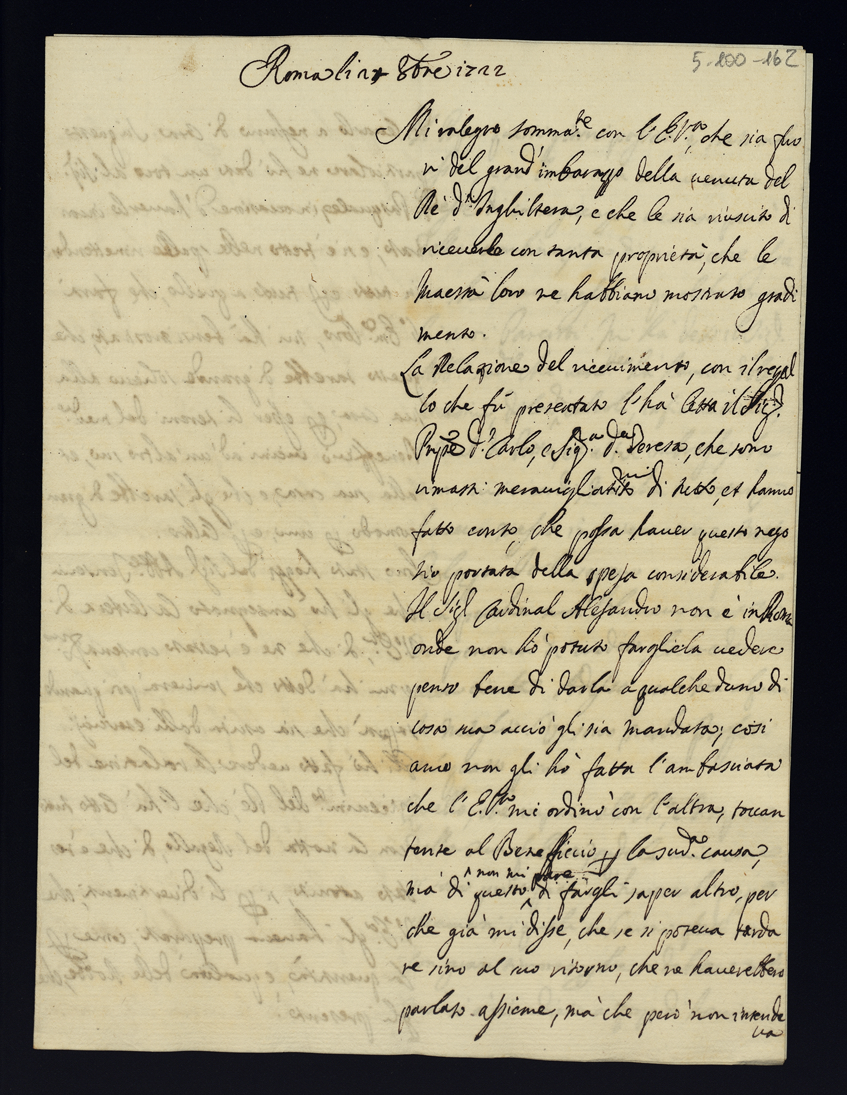 5-100-162
Roma li 24 8bre 1722
Mi ralegro somma.te con l'E.V.ra, che sia fuo
ri del grand'imbarazzo della venuta del
Rè d'Inghilterra, e che le sia riuscito di
riceverle con tanta proprietà, che le
Maestà loro ne habbiano mostrato gradi
mento.
La Relazione del ricevimento, con il regal
lo che fù presentato l'hà letta il Sig.r
Pnpe d. Carlo, e Sig.ra d. Teresa, che sono
rimasti meravigliatissimi di tutto, et hanno
fatto conto, che possa haver questo nego
tio portata della spesa considerabile.
Il Sig.l Cardinal Alesandro non è in Roma
onde non hò potuto fargliela vedere
penso bene di darla a qualcheduno di
cosa sua acciò gli sia mandata; così
anco non gli hò fatta l'ambasciata
che l'E.V.ra mi ordinò con l'altra, toccan
tente al Beneficcio la sud.a causa,
mà di questo non mi pare di fargli saper altro, per
che già mi disse, che se si poteva tarda
re sino al suo ritorno, che ne haverebbero
parlato assieme, mà che però non intende
va